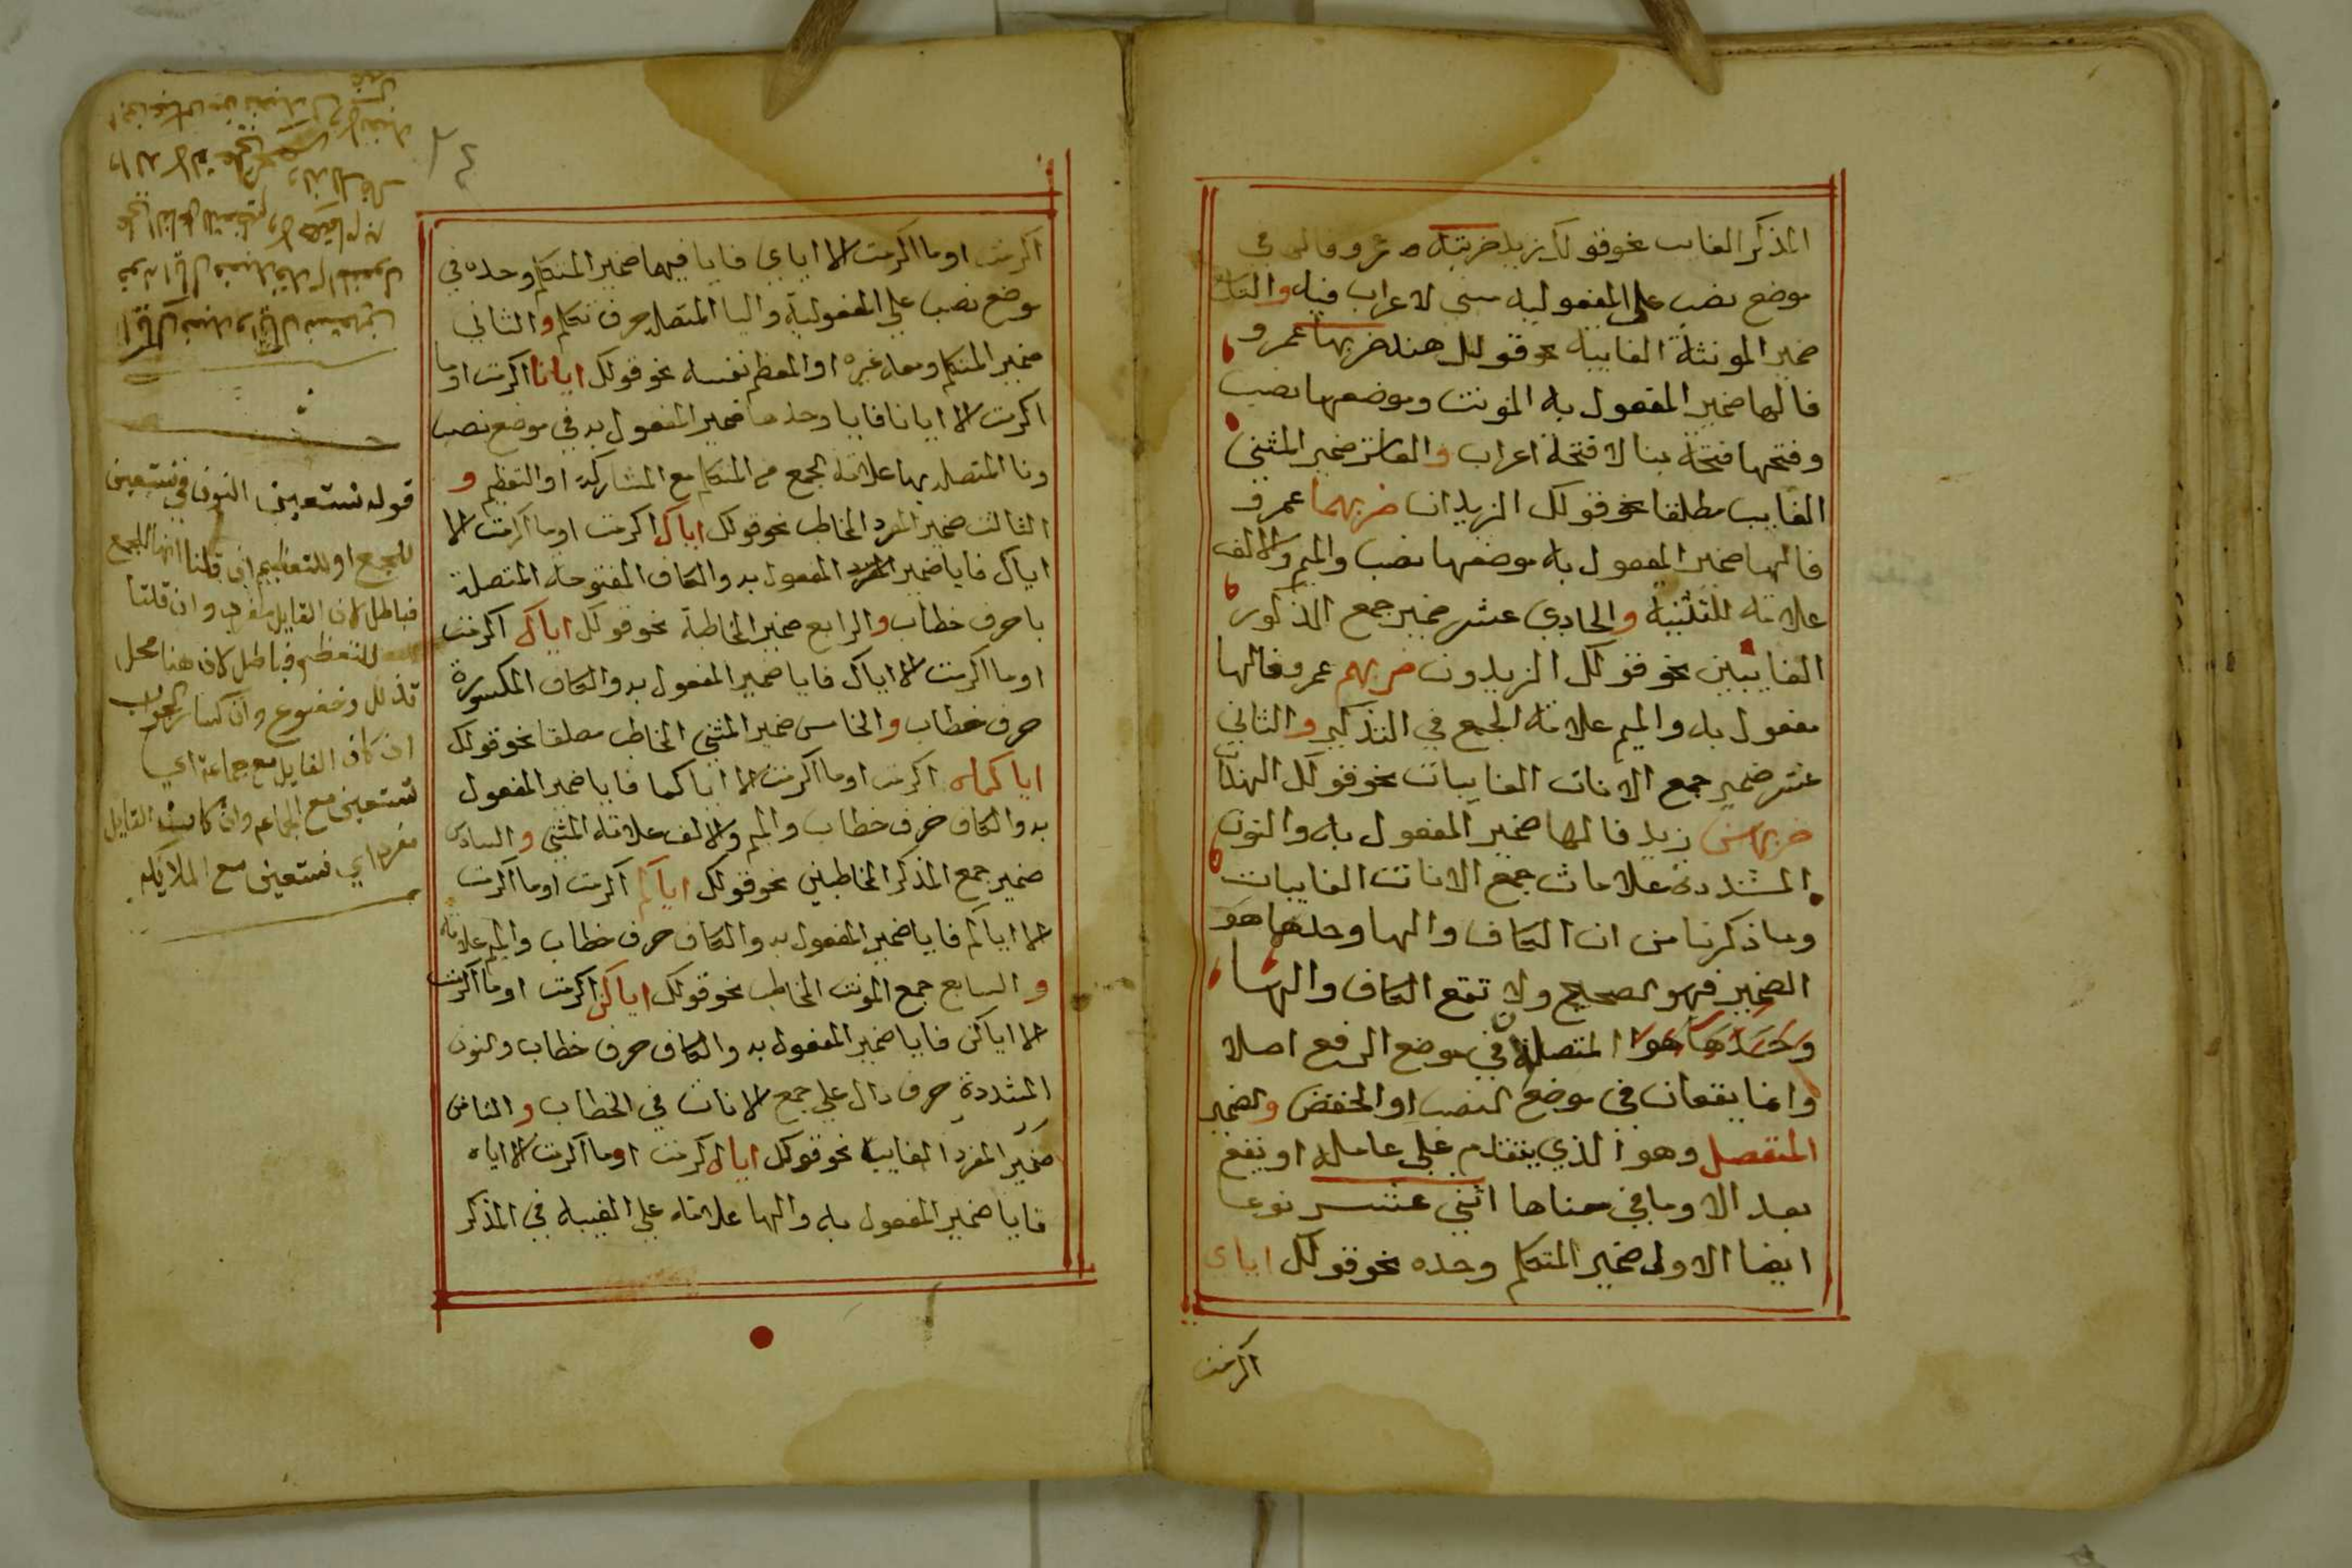 المذكر الغايب نحو قولك زيد ضربته عمرو فالها في
موضع نصب على المفعولية مبني لا اعراب فيه والتاسع
ضمير المونثة الغايبة نحو قولك هند ضربها عمرو
فالها ضمير المفعول به المونث وموضعها نصب
وفتحها فتحة بنا لا فتحة اعراب والعاشر ضمير المثنى
الغايب مطلقا نحو قولك الزيدان ضربهما عمرو
فالها ضمير المفعول به موضعها نصب والميم والالف
علامة للتثنية والحادي عشر ضمير جمع الذكور
الغايبين نحو قولك الزيدون ضربهم عمرو فالها
مفعول به والميم علامة الجمع في التذكير والثاني
عشر ضمير جمع الاناث الغايبات نحو قولك الهندات
ضربهن زيد فالها ضمير المفعول به والنون
المشددة علامات جمع الاناث الغايبات
وما ذكرنا من ان الكاف والها وحدها هو
الضمير فهو الصحيح ولا تقع الكاف والها
المتصلة في موضع الرفع اصلا
وانما يقعان في موضع النصب او الخفض والضمير
المنفصل وهو الذي يتقدم على عامله او يقع
بعد الا وما في معناها اثني عشر نوعا
ايضا الاول ضمير المتكلم وحده نحو قولك اياي
اكرمت
٢٤
اكرمت او ما اكرمت الا اياي فايا فيها ضمير المتكلم وحده في
موضع نصب علي المفعولية واليا المتصل حرف تكلم والثاني
ضمير المتكلم ومعه غيره او المعظم نفسه نحو قولك ايانا اكرمت او ما
اكرمت الا ايانا فايا وحدها ضمير المفعول به في موضع نصب
ونا المتصلة بها علامة الجمع من المتكلم مع المشاركة او التعظيم و
الثالث ضمير المفرد المخاطب نحو قولك اياك اكرمت او ما اكرمت الا
اياك فايا ضمير المفعول به والكاف المفتوحة المتصلة
با حرف خطاب والرابع ضمير المخاطبة نحو قولك اياك اكرمت
او ما اكرمت الا اياك فايا ضمير المفعول به والكاف المكسورة
حرف خطاب والخامس ضمير المثني المخاطب مطلقا نحو قولك
اياكما اكرمت او ما اكرمت الا اياكما فايا ضمير المفعول
به والكاف حرف خطاب والميم والالف علامة المثني والسادس
ضمير جمع المذكر المخاطبين نحو قولك اياكم اكرمت او ما اكرمت
الا اياكم فايا ضمير المفعول به والكاف حرف خطاب والميم علامة
والسابع جمع المونث المخاطب نحو قولك اياكن اكرمت او ما اكرمت
الا اياكن فايا ضمير المفعول به والكاف حرف خطاب والنون
المشددة حرف دال علي جمع الاناث في الخطاب والثامن
ضمير المفرد الغايب نحو قولك اياه اكرمت او ما اكرمت الا اياه
فايا ضمير المفعول به والها علامة علي الغيبة في المذكر
قوله نستعين النون في نستعين
للجمع او للتعظيم ان قلنا انها للجمع
فباطل لان القايل مفرد وان قلنا
للتعظيم فباطل لان هنا محل
تذلل وخضوع وان كسار الجواب
ان كان القايل مع جماعة اي
نستعين مع الجماعه وان كانت القايل
مفرد اي نستعين مع الملايكه